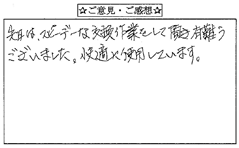 ☆ご意見・ご感想☆
先日は、スピーデーな交換作業をして頂き有難う
ございました。快適に使用しています。